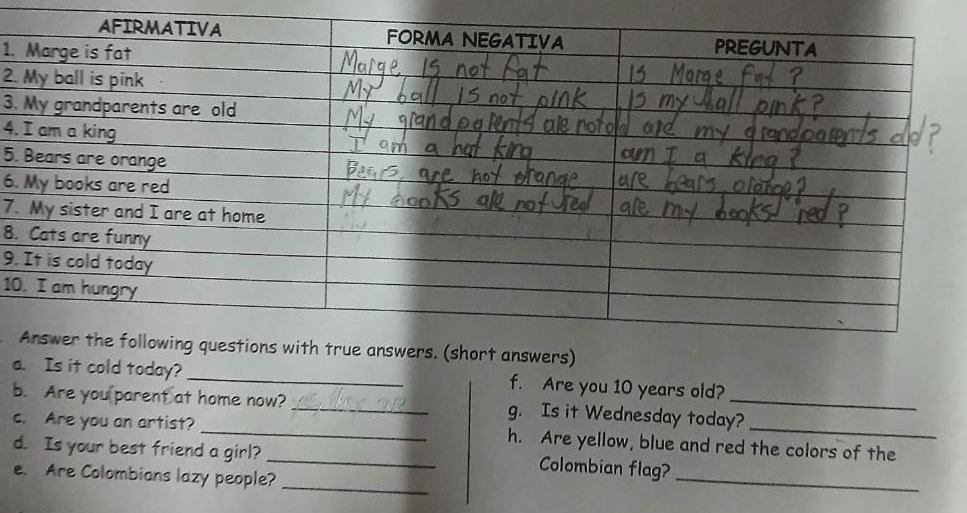 AFIRMATIVA FORMA NEGATIVA PREGUNTA
1. Marge is fat Marge is not fat is Marge fat?
2. My ball is pink My ball is not pink is my ball pink?
3. My grandparents are old My grandparents are not old are my grandparents old?
4. I am a king I am a not king am I a king?
5. Bears are orange Bears are not orange are bears orange?
6. My books are red My books are not red are my books red?
7. My sister and I are at home
8. Cats are funny
9. It is cold today
10. I am hungry
Answer the following questions with true answers. (short answers)
a. Is it cold today?
b. Are you parent at home now?
c. Are you an artist?
d. Is your best friend a girl?
e. Are Colombians lazy people?
f. Are you 10 years old?
g. Is it Wednesday today?
h. Are yellow, blue and red the colors of the
Colombian flag?